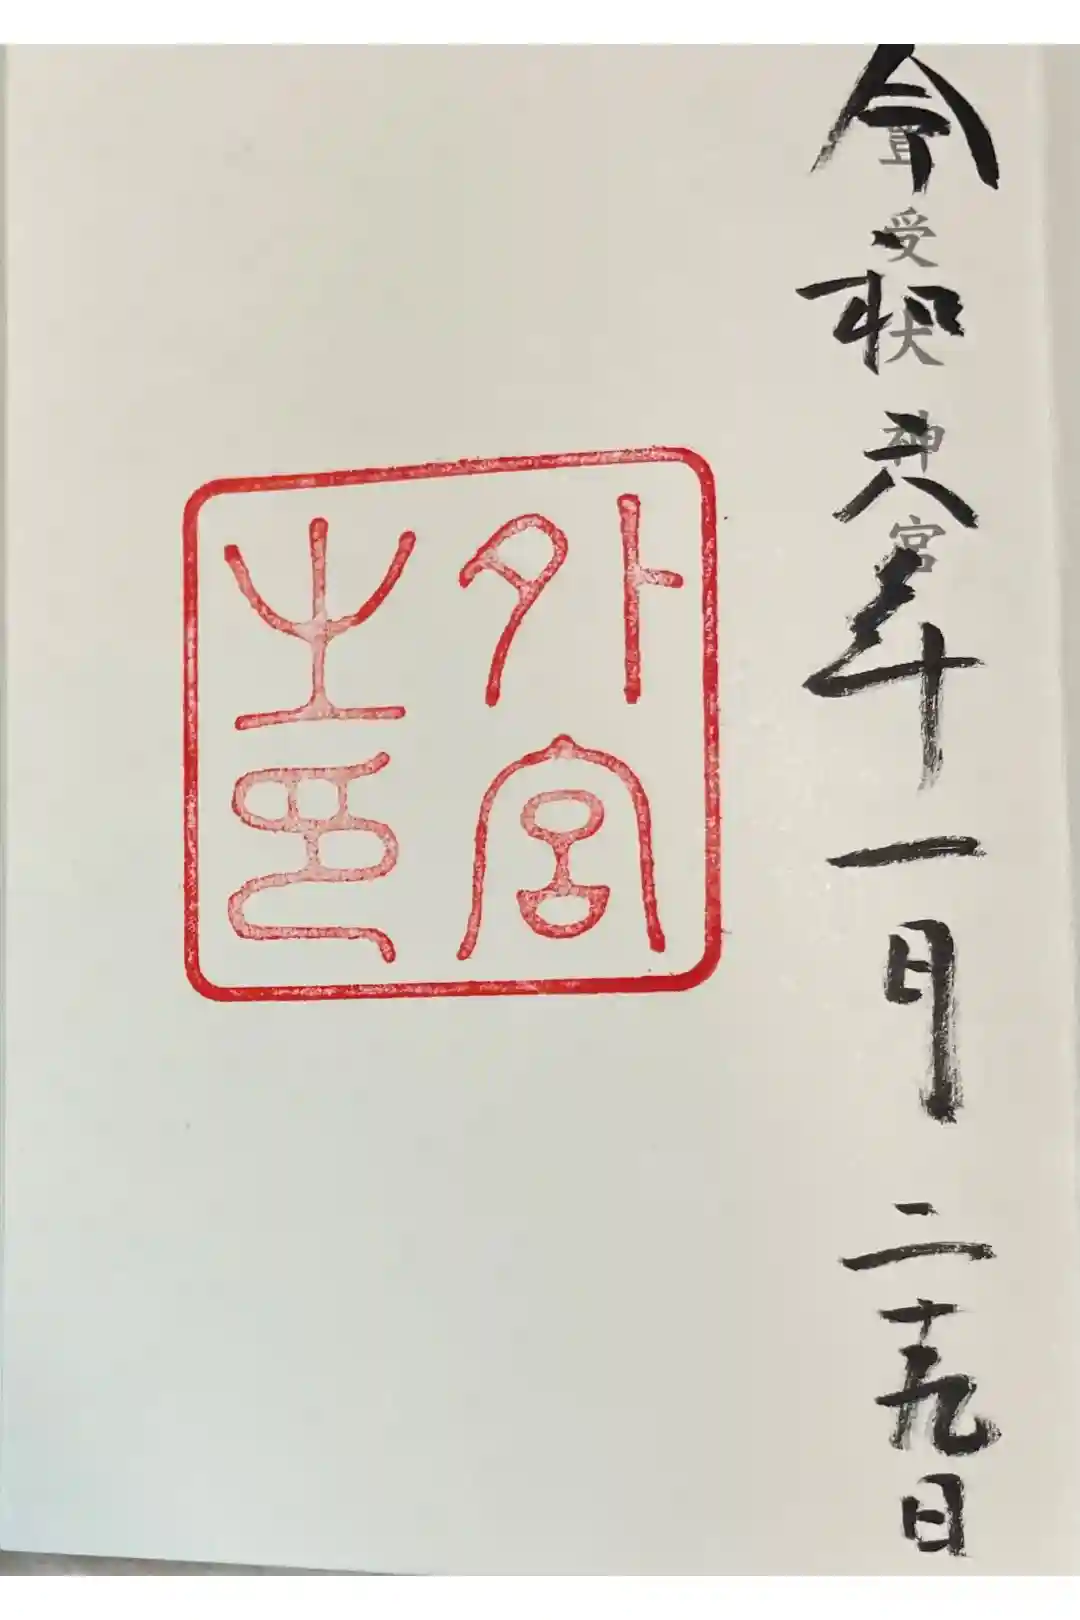 豊受大神宮
令和六年一月二十九日
外宮
之印